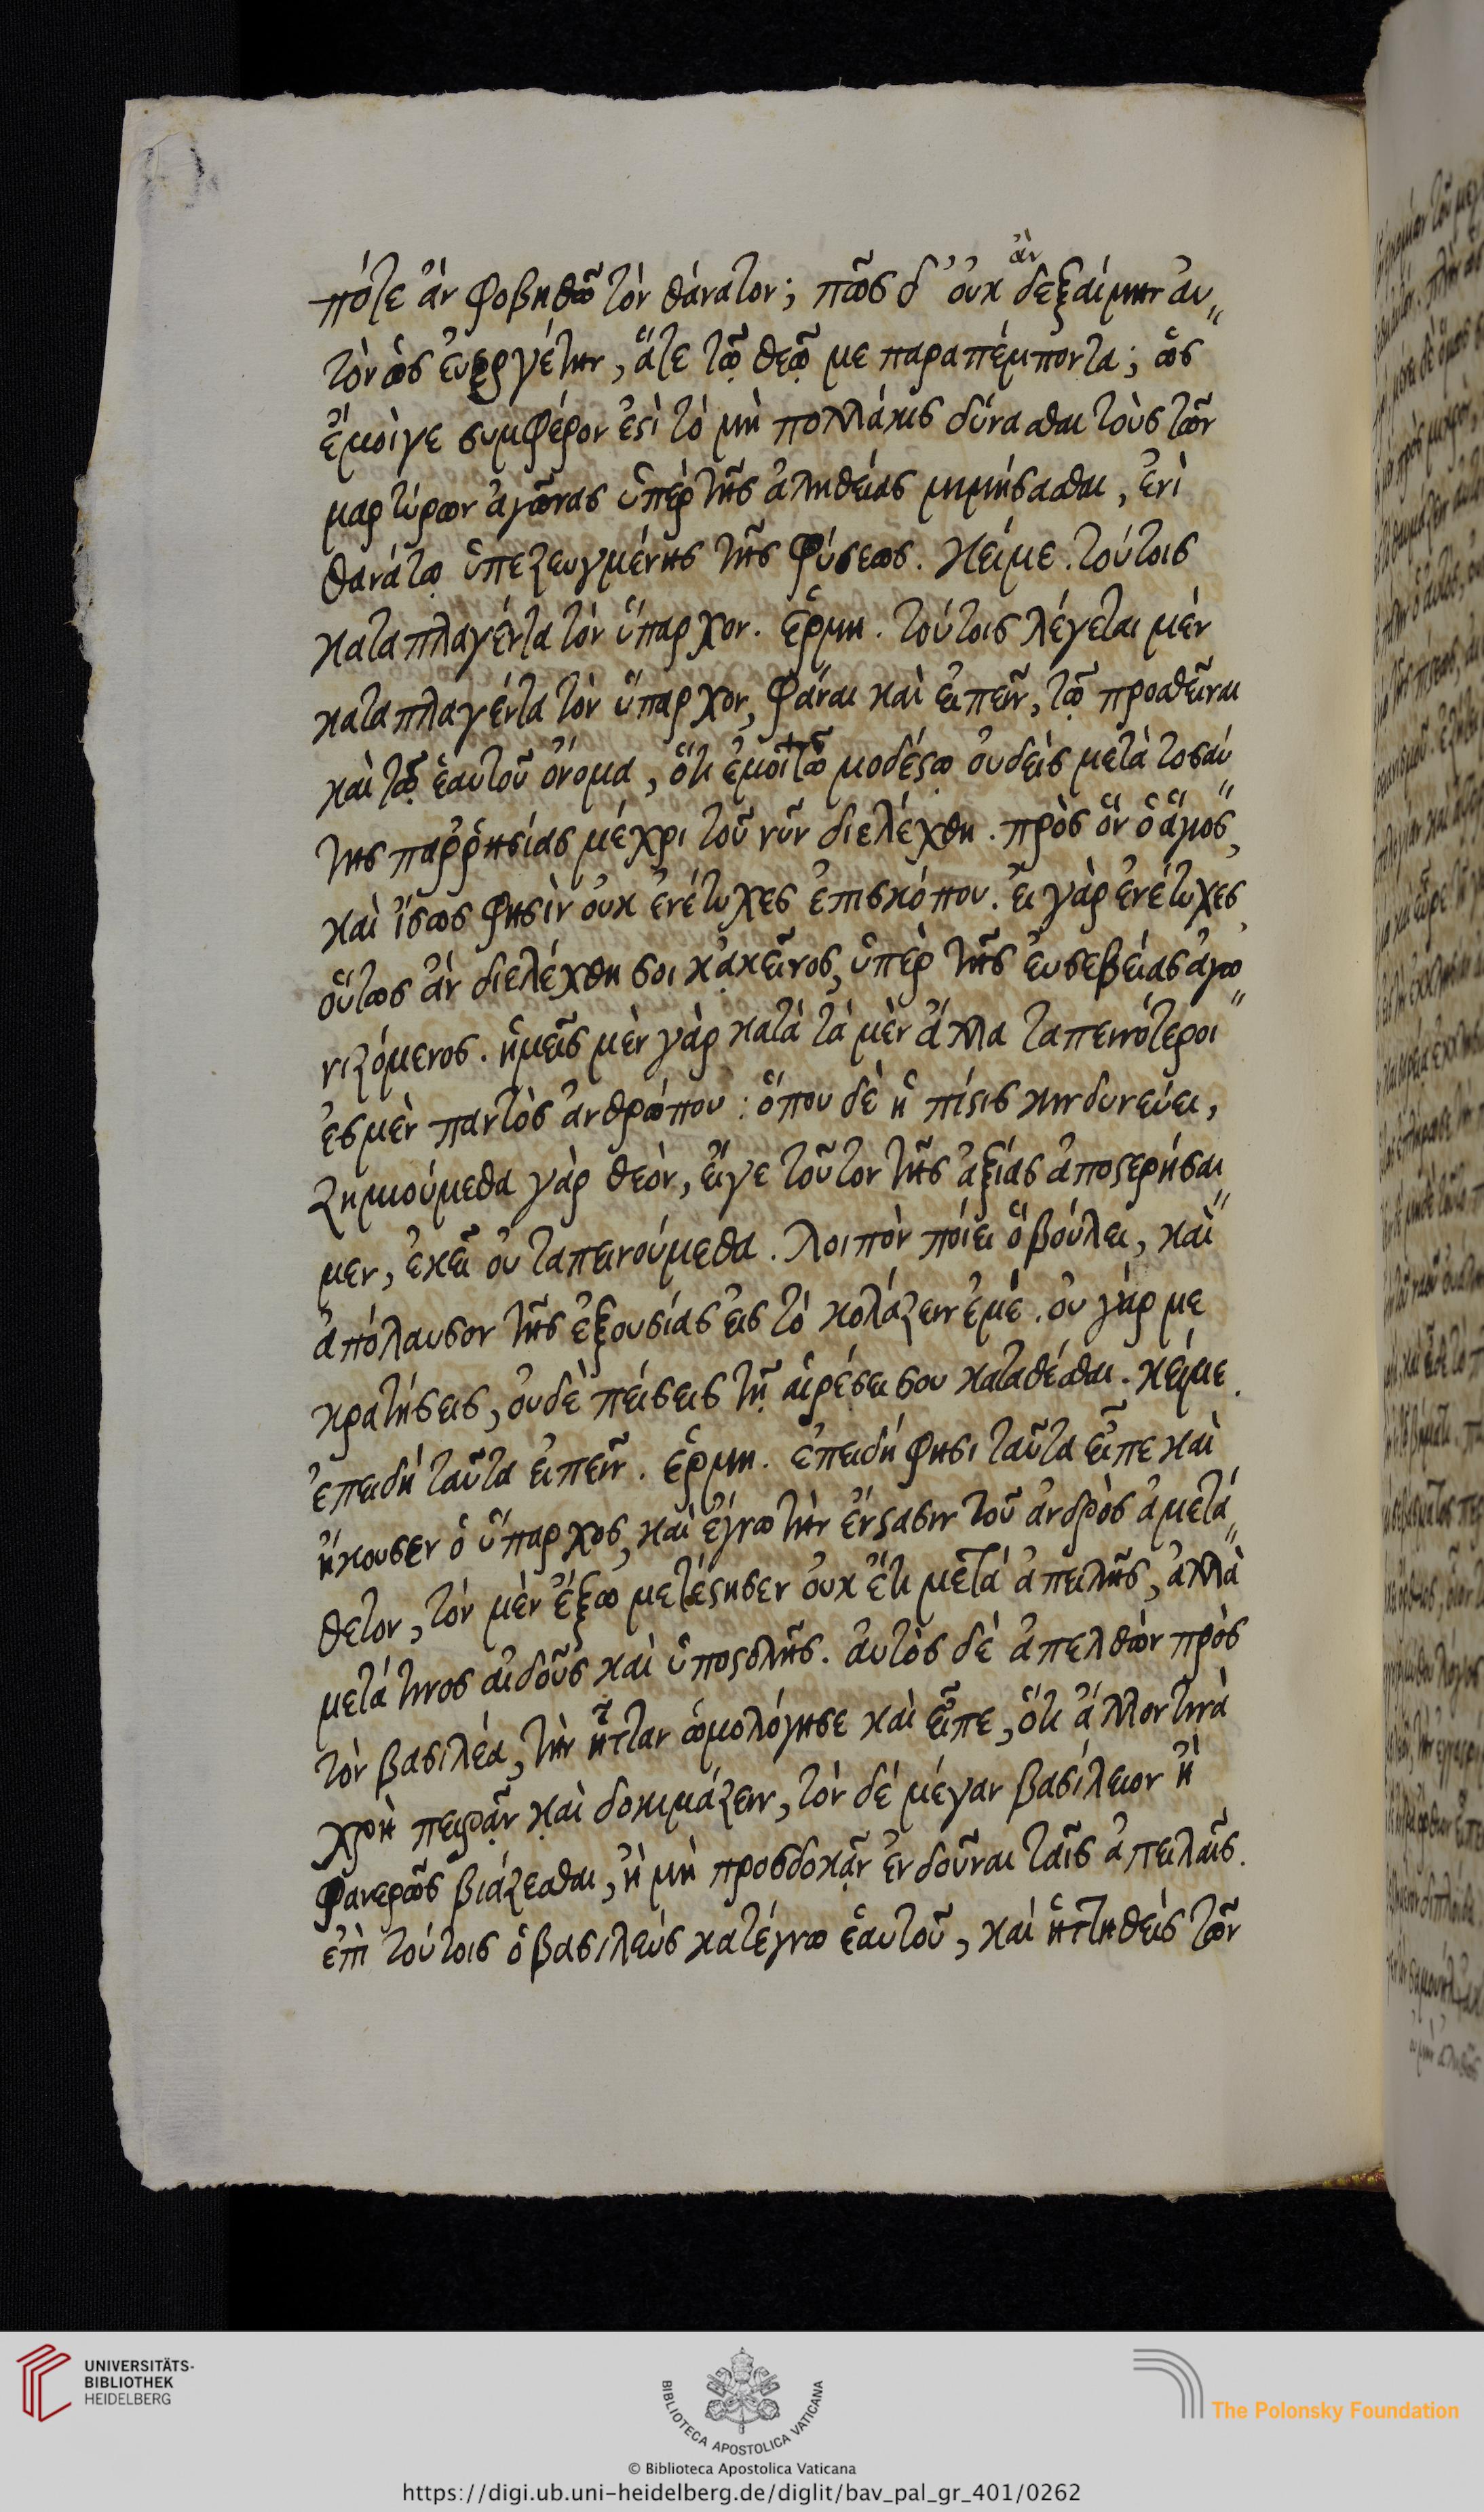 πότε ἂν φοβηθῶ τὸν θάνατον; πῶς δ' οὐκ ἂν δεξαίμην αὐ„
τὸν ὡς εὐεργέτην, ἅτε τῷ θεῷ με παραπέμποντα; ὡς
ἔμοιγε συμφέρον ἐστὶ τὸ μὴ πολλάκις δύνασθαι τοὺς τῶν
μαρτύρων ἀγῶνας ὑπὲρ τῆς ἀληθείας μιμήσασθαι, ἑνὶ
θανάτῳ ὑπεζευγμένης τῆς φύσεως. κείμε. τούτοις
καταπλαγέντα τὸν ὕπαρχον. ἑρμη. τούτοις λέγεται μὲν
καταπλαγέντα τὸν ὕπαρχον, φᾶναι καὶ εἰπεῖν, τῷ προσθεῖναι
καὶ τῷ ἑαυτοῦ ὄνομα, ὅτι ἐμοὶ τῷ μοδέστῳ οὐδεὶς μετὰ τοσαύ„
της παῤῥησίας μέχρι τοῦ νῦν διελέχθη. πρὸς ὃν ὁ ἅγιος,
καὶ ἴσως φησὶν οὐκ ἐνέτυχες ἐπισκόπου. εἰ γὰρ ἐνέτυχες,
οὕτως ἂν διελέχθη σοι κἀκεῖνος, ὑπὲρ τῆς εὐσεβείας ἀγω„
νιζόμενος. ἡμεῖς μὲν γὰρ κατὰ τὰ μὲν ἄλλα ταπεινότεροι
ἐσμὲν παντὸς ἀνθρώπου: ὅπου δὲ ἡ πίστις κινδυνεύει,
ζημιούμεθα γὰρ θεὸν, εἴγε τοῦτον τῆς ἀξίας ἀποστερήσαι„
μεν, ἐκεῖ οὐ ταπεινούμεθα. λοιπὸν ποίει ὃ βούλει, καὶ
ἀπόλαυσον τῆς ἐξουσίας εἰς τὸ κολάζειν ἐμέ. οὐ γάρ με
κρατήσεις, οὐδὲ πείσεις τῇ αἱρέσει σου καταθέσθαι. κείμε.
ἐπειδὴ ταῦτα εἰπεῖν. ἑρμη. ἐπειδή φησι ταῦτα εἶπε καὶ
ἤκουσεν ὁ ὕπαρχος, καὶ ἔγνω τὴν ἔνστασιν τοῦ ἀνδρὸς ἀμετά„
θετον, τὸν μὲν ἔξω μετέστησεν οὐκ ἔτι μετὰ ἀπειλῆς, ἀλλὰ
μετά τινος αἰδοῦς καὶ ὑποστολῆς. αὐτὸς δὲ ἀπελθὼν πρὸς
τὸν βασιλέα, τὴν ἧτταν ὡμολόγησε καὶ εἶπε, ὅτι ἄλλον τινὰ
χρὴ πειρᾷν καὶ δοκιμάζειν, τὸν δὲ μέγαν βασίλειον ἢ
φανερῶς βιάζεσθαι, ἢ μὴ προσδοκᾷν ἐνδοῦναι ταῖς ἀπειλαῖς.
ἐπὶ τούτοις ὁ βασιλεὺς κατέγνω ἑαυτοῦ, καὶ ἡττηθεὶς τῶν
UNIVERSITÄTS-
BIBLIOTHEK
HEIDELBERG
BIBLIOTECA APOSTOLICA VATICANA
The Polonsky Foundation
© Biblioteca Apostolica Vaticana
https://digi.ub.uni-heidelberg.de/diglit/bav_pal_gr_401/0262